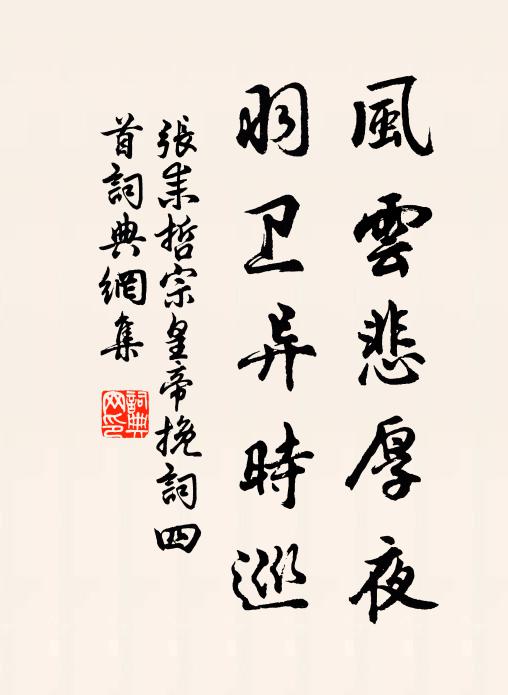 風雲悲厚夜
羽卫异時巡
張耒哲宗皇帝挽詞四
首詞典網集
詞典
网印